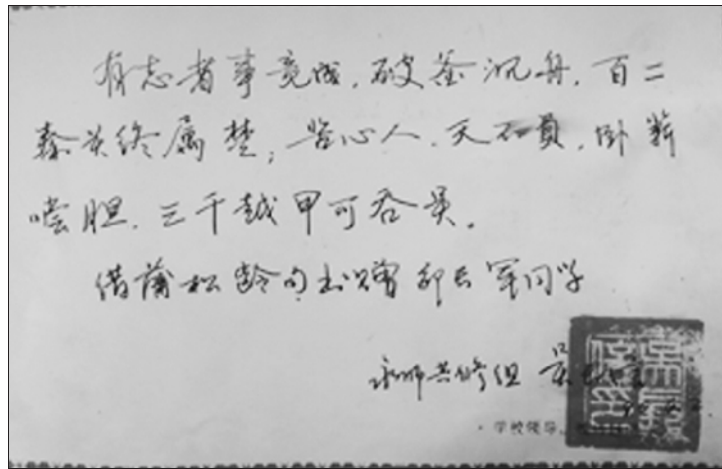 有志者事竟成，破釜沉舟，百二
秦关终属楚；苦心人，天不负，卧薪
嚐胆，三千越甲可吞吴。
借蒲松龄句书赠 军同学
永师共修组 吴
·学校领导、